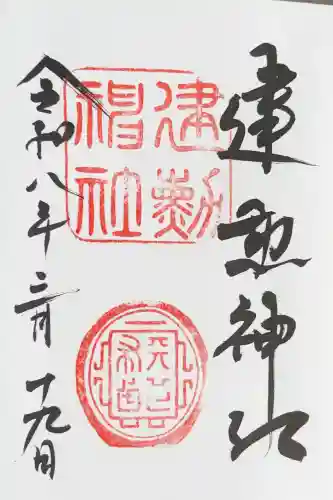 建勲神社
建勲
神社
令和八年三月十九日